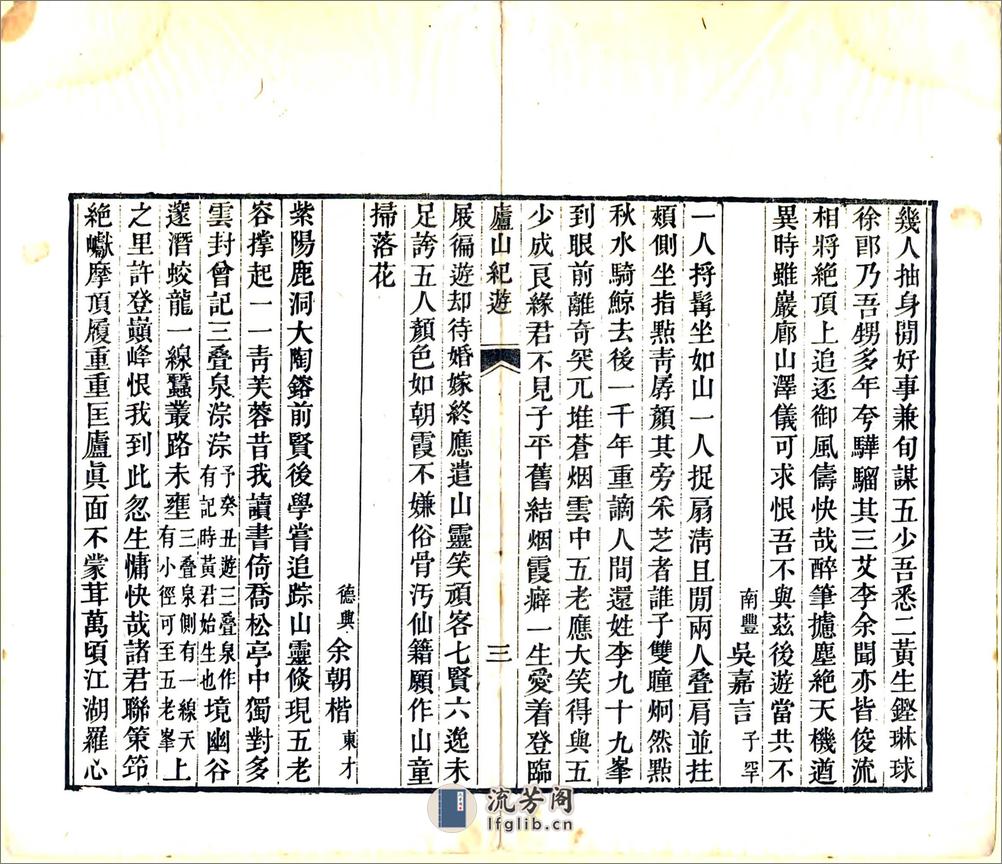 幾人抽身閒好事兼旬謀五少吾悉二黃生鏗琳球
徐郎乃吾甥多年夸驊騮其三艾李余聞亦皆俊流
相將絕頂上追逐御風儔快哉醉筆攄塵絕天機遒
異時雖巖廊山澤儀可求恨吾不與茲後遊當共不
南豐 吳嘉言 子罕
一人捋髯坐如山一人捉扇淸且閒兩人叠肩並拄
頰側坐指點靑孱顏其旁采芝者誰子雙瞳炯然點
秋水騎鯨去後一千年重謫人間還姓李九十九峯
到眼前離奇突兀堆蒼烟雲中五老應大笑得與五
少成良緣君不見子平舊結烟霞癖一生愛着登臨
廬山紀遊 三
屐徧遊却待婚嫁終應遣山靈笑頑客七賢六逸未
足誇五人顏色如朝霞不嫌俗骨汚仙籍願作山童
掃落花
德興 余朝楷 東才
紫陽鹿洞大陶鎔前賢後學嘗追踪山靈倐現五老
容撑起一一靑芙蓉昔我讀書倚喬松亭中獨對多
雲封曾記三叠泉淙淙予癸丑遊三叠泉作有記時黃君始生也境幽谷
邃潛蛟龍一線蠶叢路未壅三叠泉側有一線天有小徑可至五老峯上
之里許登巔峰恨我到此忽生慵快哉諸君聯策筇
絕巘摩頂履重重匡廬眞面不蒙茸萬頃江湖羅心
流芳阁
lfglib.cn